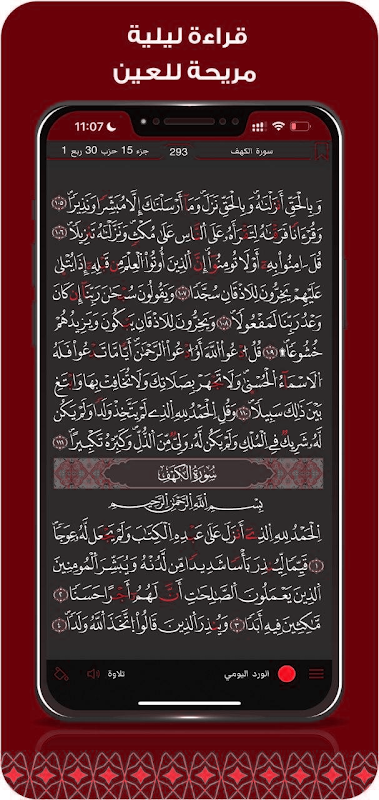 قراءة ليلية
مريحة للعين
11:07
جزء 15 حزب 30 ربع 1
293
سورة الكهف
وَبِالْحَقِّ أَنزَلْنَٰهُ وَبِالْحَقِّ نَزَلَ وَمَا أَرْسَلْنَٰكَ إِلَّا مُبَشِّرًا وَنَذِيرًا ١٠٥
وَقُرْءَانًا فَرَقْنَٰهُ لِتَقْرَأَهُ عَلَى النَّاسِ عَلَىٰ مُكْثٍ وَنَزَّلْنَٰهُ تَنزِيلًا ١٠٦
قُلْ ءَامِنُوا بِهِ أَوْ لَا تُؤْمِنُوا إِنَّ الَّذِينَ أُوتُوا الْعِلْمَ مِن قَبْلِهِ إِذَا يُتْلَىٰ
عَلَيْهِمْ يَخِرُّونَ لِلْأَذْقَانِ سُجَّدًا ١٠٧ وَيَقُولُونَ سُبْحَٰنَ رَبِّنَا إِن كَانَ
وَعْدُ رَبِّنَا لَمَفْعُولًا ١٠٨ وَيَخِرُّونَ لِلْأَذْقَانِ يَبْكُونَ وَيَزِيدُهُمْ
خُشُوعًا ۩ ١٠٩ قُلِ ادْعُوا اللَّهَ أَوِ ادْعُوا الرَّحْمَٰنَ أَيًّا مَّا تَدْعُوا فَلَهُ
الْأَسْمَاءُ الْحُسْنَىٰ وَلَا تَجْهَرْ بِصَلَاتِكَ وَلَا تُخَافِتْ بِهَا وَابْتَغِ
بَيْنَ ذَٰلِكَ سَبِيلًا ١١٠ وَقُلِ الْحَمْدُ لِلَّهِ الَّذِي لَمْ يَتَّخِذْ وَلَدًا وَلَمْ يَكُن
لَّهُ شَرِيكٌ فِي الْمُلْكِ وَلَمْ يَكُن لَّهُ وَلِيٌّ مِّنَ الذُّلِّ وَكَبِّرْهُ تَكْبِيرًا ١١١
سُورَةُ الكَهْفِ
بِسْمِ اللَّهِ الرَّحْمَٰنِ الرَّحِيمِ
الْحَمْدُ لِلَّهِ الَّذِي أَنزَلَ عَلَىٰ عَبْدِهِ الْكِتَٰبَ وَلَمْ يَجْعَل لَّهُ عِوَجًا
١ قَيِّمًا لِّيُنذِرَ بَأْسًا شَدِيدًا مِّن لَّدُنْهُ وَيُبَشِّرَ الْمُؤْمِنِينَ
الَّذِينَ يَعْمَلُونَ الصَّٰلِحَٰتِ أَنَّ لَهُمْ أَجْرًا حَسَنًا ٢
مَّٰكِثِينَ فِيهِ أَبَدًا ٣ وَيُنذِرَ الَّذِينَ قَالُوا اتَّخَذَ اللَّهُ وَلَدًا ٤
الورد اليومي
تلاوة